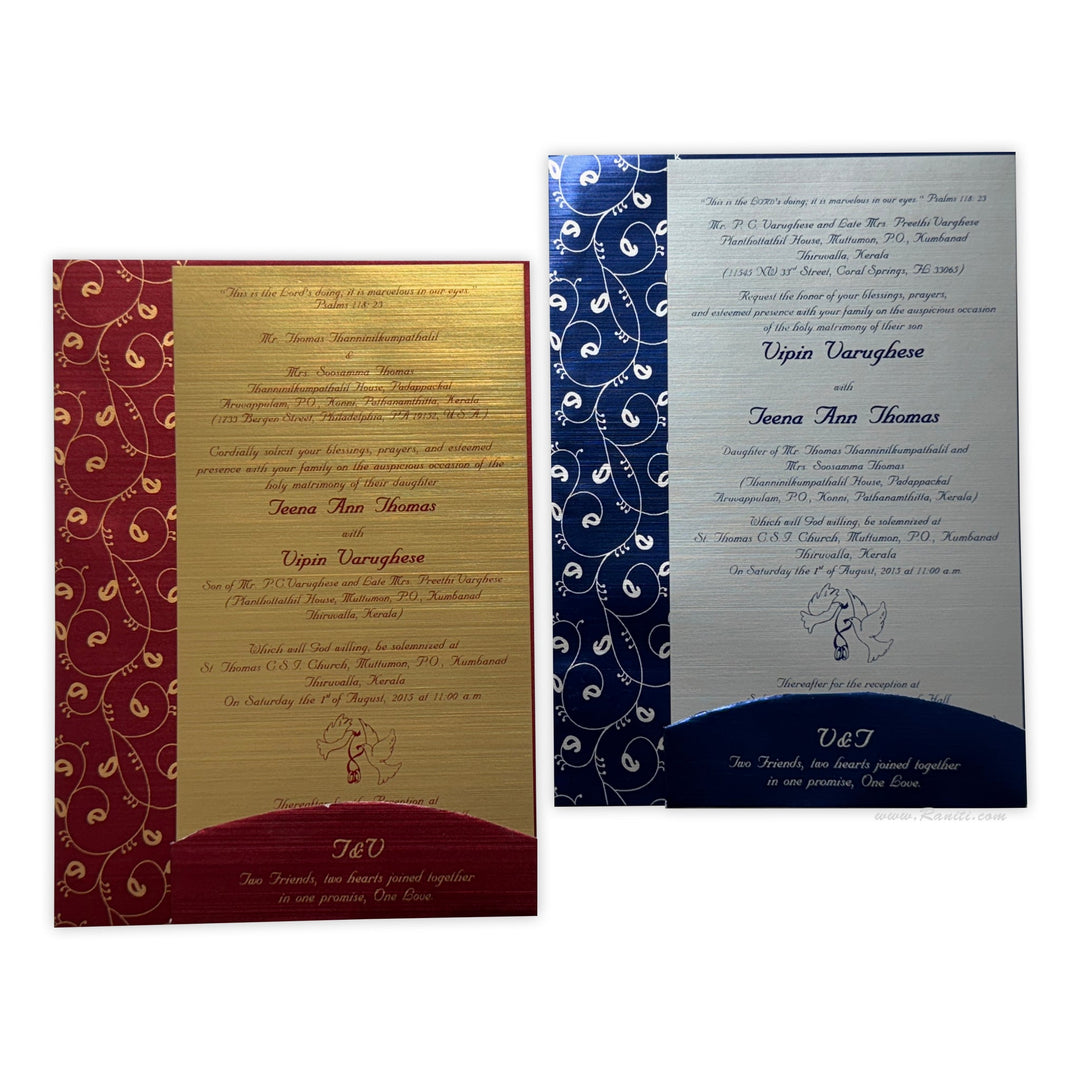 "This is the Lord's doing, it is marvelous in our eyes."
Psalms 118: 23
Mr. Thomas Thanninilkumpathalil
&
Mrs. Soosamma Thomas
Thanninilkumpathalil House, Padappackal
Aruvappulam, P.O., Konni, Pathanamthitta, Kerala
(1233 Bergen Street, Philadelphia, PA 19152, U.S.A.)
Cordially solicit your blessings, prayers, and esteemed
presence with your family on the auspicious occasion of the
holy matrimony of their daughter
Teena Ann Thomas
with
Vipin Varughese
Son of Mr. P.C.Varughese and Late Mrs. Preethi Varghese
(Planthottathil House, Muttumon, P.O., Kumbanad
Thiruvalla, Kerala)
Which will God willing, be solemnized at
St. Thomas C.S.I. Church, Muttumon, P.O., Kumbanad
Thiruvalla, Kerala
On Saturday the 1st of August, 2015 at 11:00 a.m
Thereafter for the Reception at
T&V
Two Friends, two hearts joined together
in one promise, One Love.
"This is the LORD's doing; it is marvelous in our eyes." Psalms 118: 23
Mr. P. C. Varughese and Late Mrs. Preethi Varghese
Planthottathil House, Muttumon, P.O., Kumbanad
Thiruvalla, Kerala
(11545 NW 33rd Street, Coral Springs, FL 33065)
Request the honor of your blessings, prayers,
and esteemed presence with your family on the auspicious occasion
of the holy matrimony of their son
Vipin Varughese
with
Teena Ann Thomas
Daughter of Mr. Thomas Thanninilkumpathalil and
Mrs Soosamma Thomas
(Thanninilkumpathalil House, Padappackal
Aruvappulam, P.O., Konni, Pathanamthitta, Kerala)
Which will God willing, be solemnized at
St. Thomas C.S.I. Church, Muttumon, P.O., Kumbanad
Thiruvalla, Kerala
On Saturday the 1st of August, 2015 at 11:00 a.m.
Thereafter for the reception at
Hall
V&T
Two Friends, two hearts joined together
in one promise, One Love.
www.Raniti.com